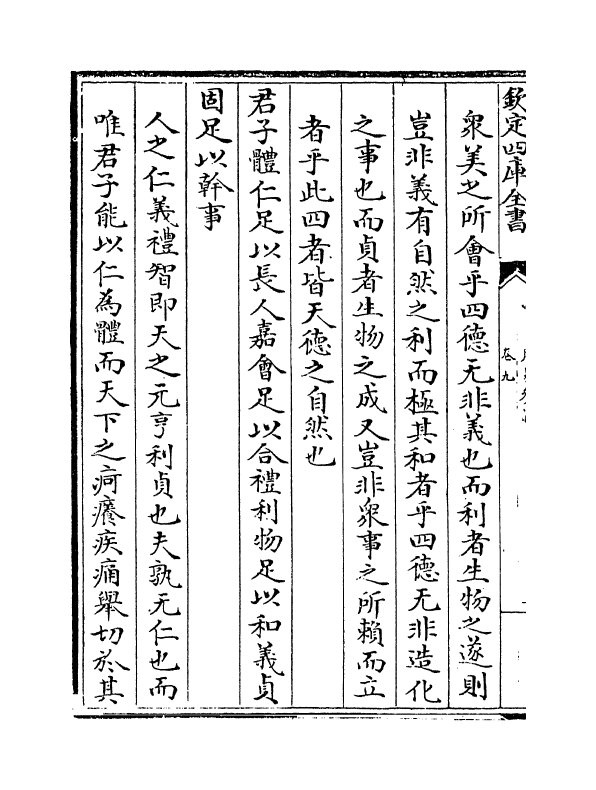 欽定四庫全書
卷九
衆美之所會乎四德无非義也而利者生物之遂則
豈非義有自然之利而極其和者乎四德无非造化
之事也而貞者生物之成又豈非衆事之所賴而立
者乎此四者皆天德之自然也
君子體仁足以長人嘉會足以合禮利物足以和義貞
固足以幹事
人之仁義禮智即天之元亨利貞也夫孰无仁也而
唯君子能以仁為體而天下之疴癢疾痛舉切於其